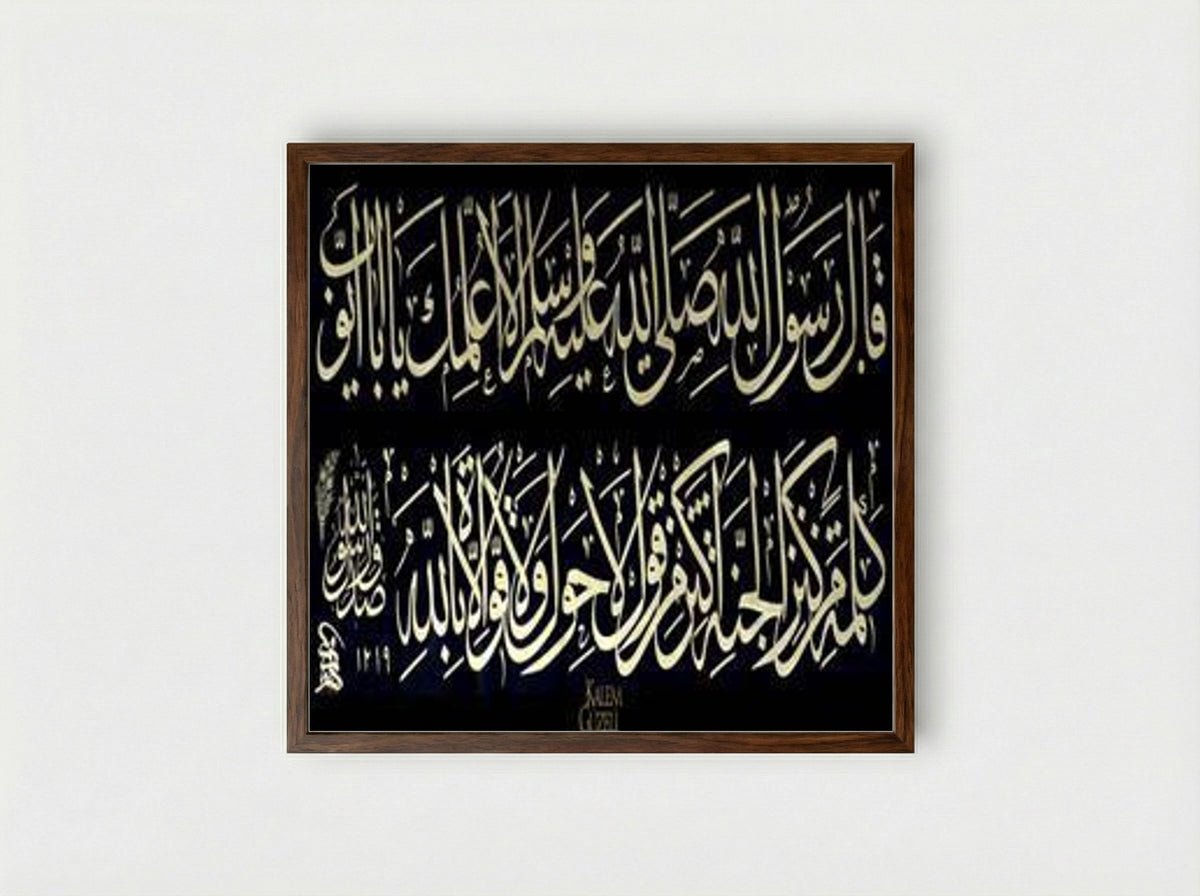 قَالَ رَسُولُ اللّٰه صَلَّى اللّٰه عَلَيْهِ وَسَلَّم اَلَا اُعَلِّمُكَ يَا اَبَا اَيُّوبَ
كَلِمَةً مِنْ كَنْزِ الْجَنَّةِ اَكْثِرْ مِنْ قَوْلِ لَا حَوْلَ وَلَا قُوَّةَ اِلَّا بِاللّٰه
صدق رسول الله
١٢١٩
KALEM
GÜZELİ